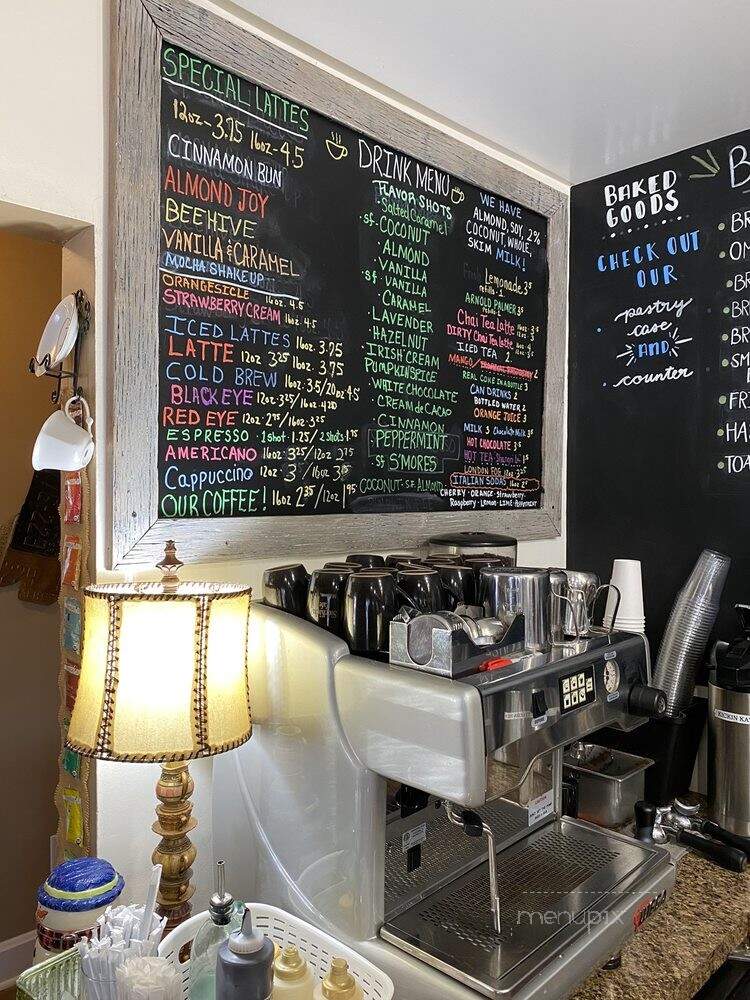 SPECIAL LATTES
12oz-3.75 16oz-4.5
CINNAMON BUN
ALMOND JOY
BEEHIVE
VANILLA & CARAMEL
MOCHA SHAKEUP
ORANGESICLE 16oz. 4.5
STRAWBERRY CREAM 16oz. 4.5
ICED LATTES 16oz. 3.75
LATTE 12oz 3.25 16oz 3.75
COLD BREW 16oz. 3.5/20oz 4.5
BLACK EYE
RED EYE 12oz. 2.75/16oz 3.25
ESPRESSO · 1 shot · 1.25/2 shots 1.75
AMERICANO 16oz 3.25/12oz 2.75
Cappuccino 12oz 3
OUR COFFEE! 16oz 2.35/12oz 1.95
DRINK MENU
FLAVOR SHOTS
·Salted Caramel
·sf-COCONUT
ALMOND
VANILLA
·sf·VANILLA
CARAMEL
·LAVENDER
HAZELNUT
IRISH CREAM
PUMPKIN SPICE
WHITE CHOCOLATE
CREAM de CACAO
CINNAMON
PEPPERMINT
sf S'MORES
COCONUT-SF. ALMOND
WE HAVE
ALMOND, SOY, 2%
COCONUT, WHOLE,
SKIM MILK!
Lemonade 3.5
refills · 1
ARNOLD PALMER 3.5
Chai Tea Latte
DIRTY Chai Tea Latte
ICED TEA 2
MANGO/
REAL COKE IN A BOTTLE 3
CAN DRINKS 2
BOTTLED WATER 2
ORANGE JUICE 3
MILK 3 Chocolate Milk
HOT CHOCOLATE
HOT TEA
LONDON FOG
ITALIAN SODAS
CHERRY · ORANGE · Strawberry
Raspberry · LEMON-LIME · Peppermint
BAKED
GOODS
CHECK OUT
OUR
pastry
case
AND
counter
B
• BR
• ON
• BR
• BR
• BR
• SM
• FRI
• HA
• TOA
KICKIN KA
menupix